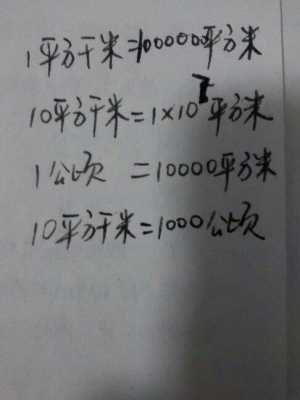 1平方千米=1000000平方米
10平方千米=1×10⁷平方米
1公顷 =10000平方米
10平方千米=1000公顷